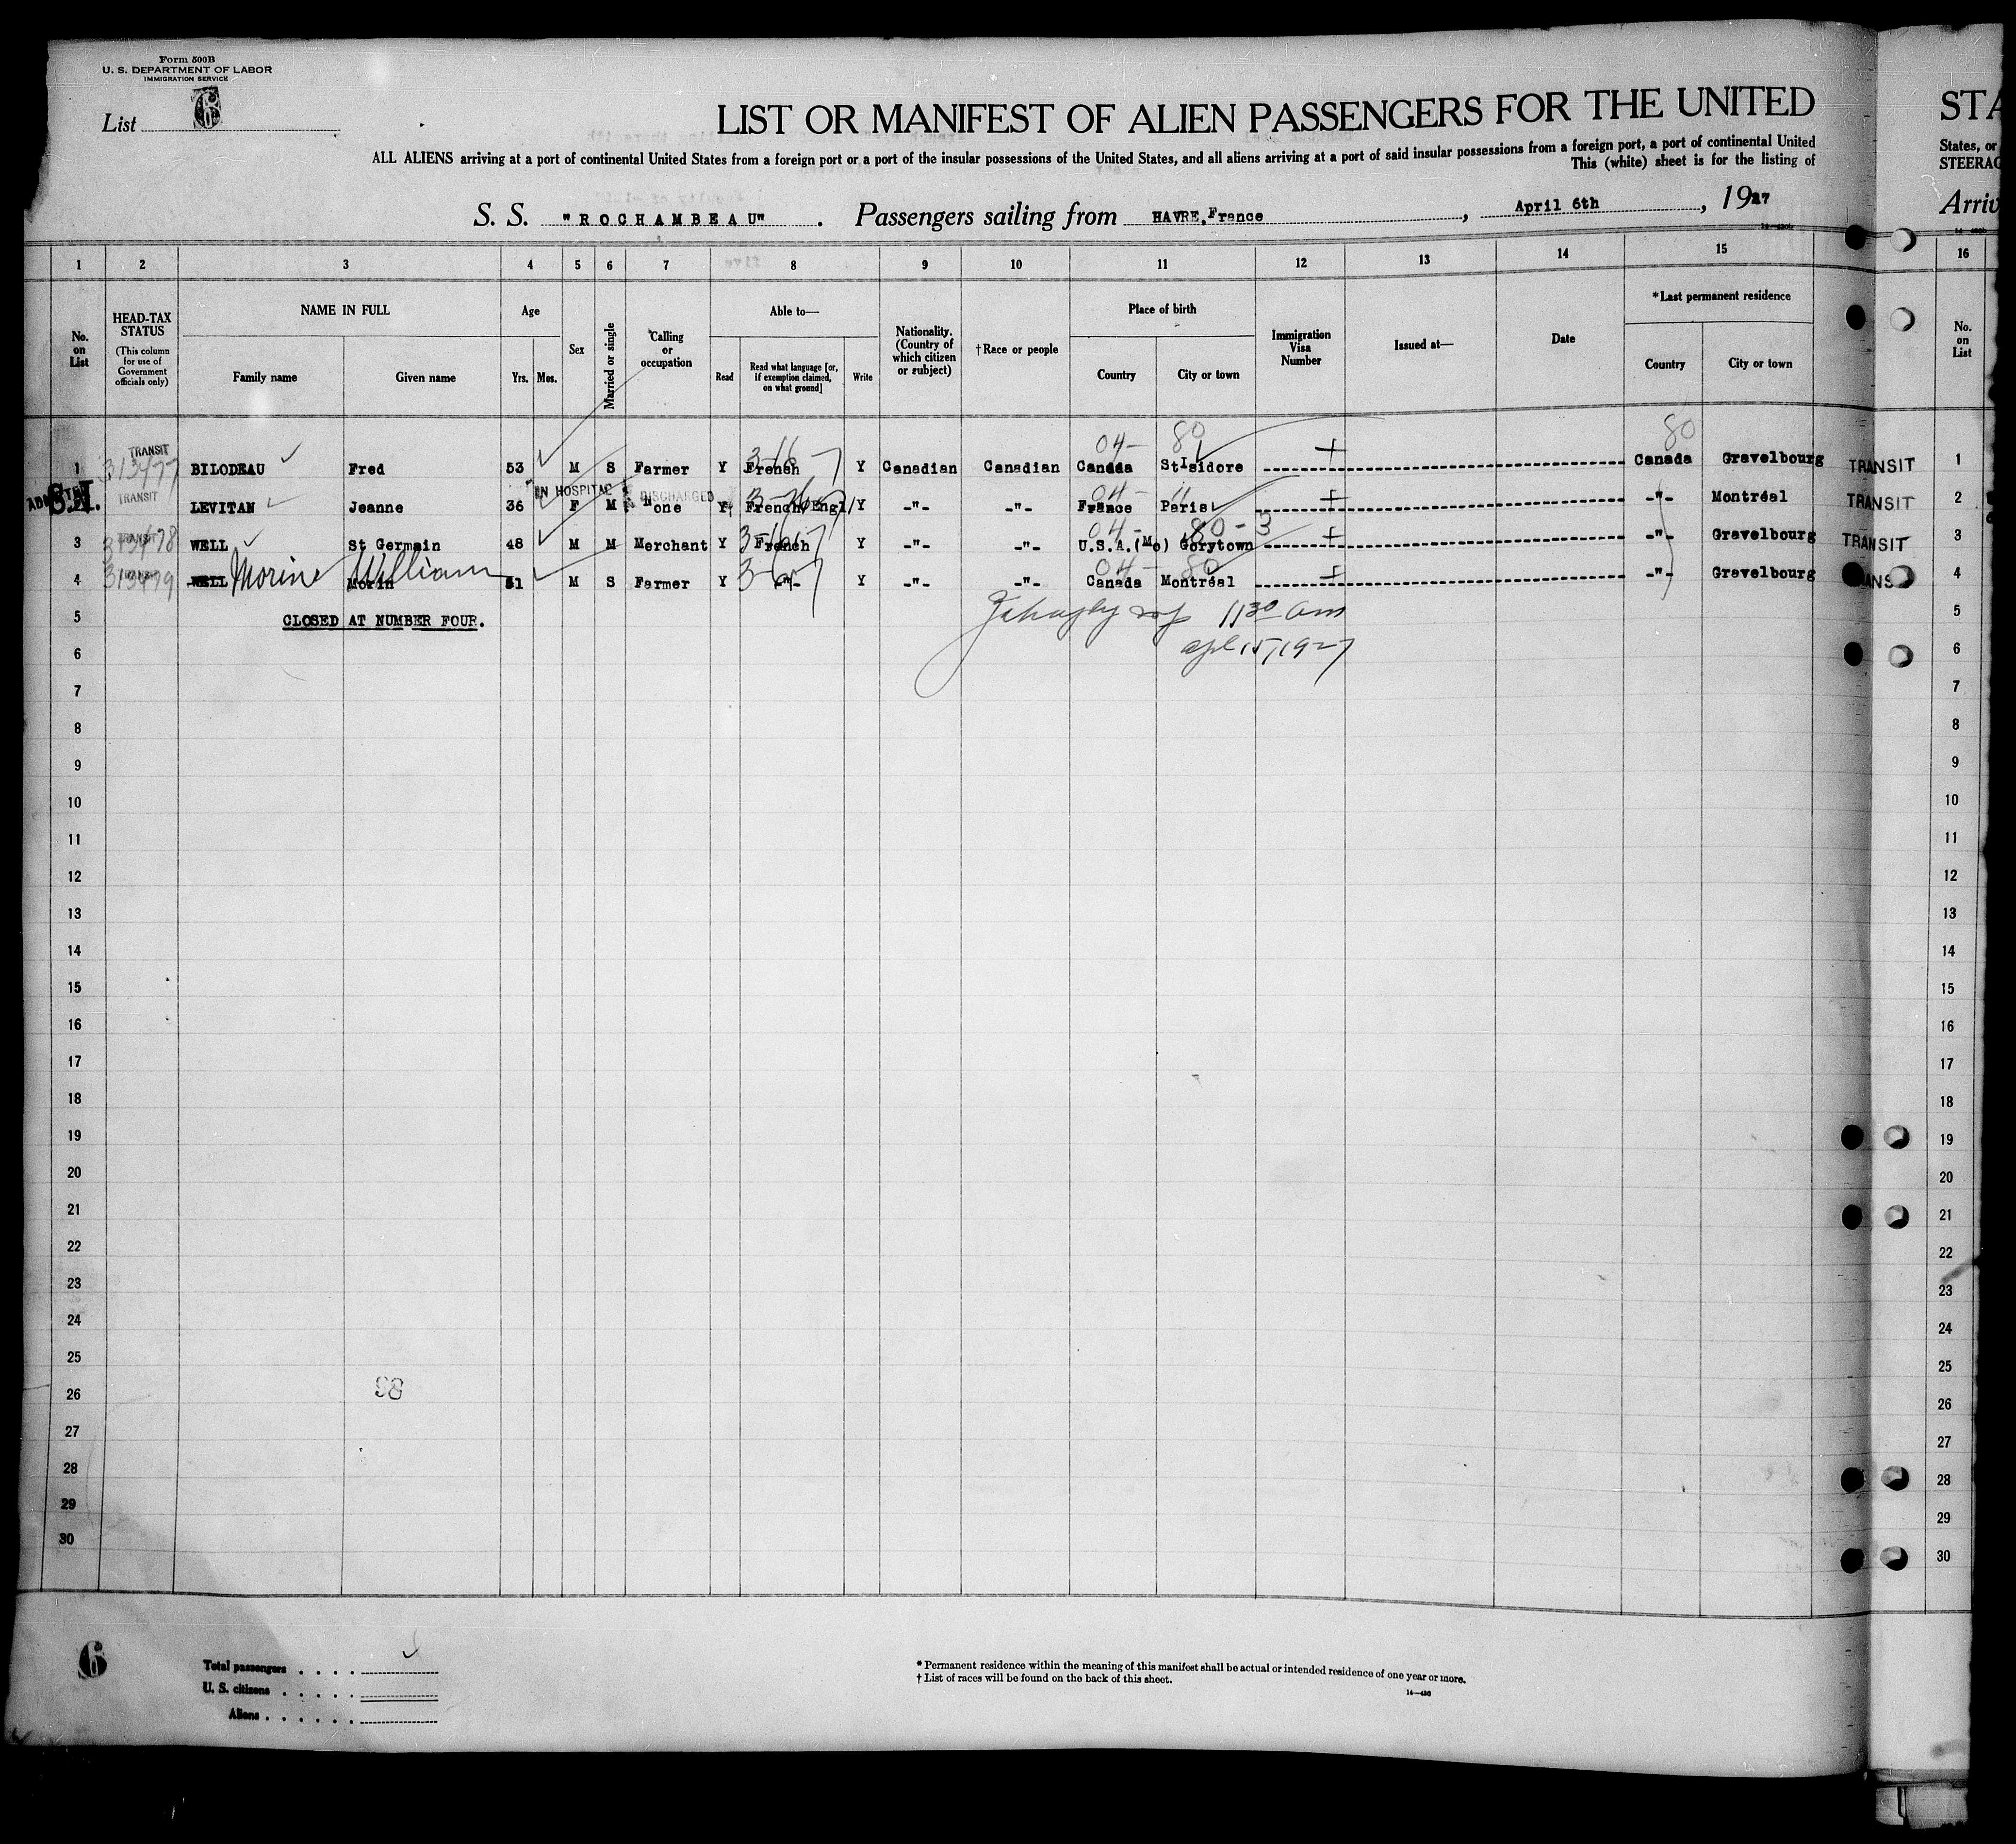 Form 500B
U. S. DEPARTMENT OF LABOR
IMMIGRATION SERVICE
List 6
LIST OR MANIFEST OF ALIEN PASSENGERS FOR THE UNITED
STA
ALL ALIENS arriving at a port of continental United States from a foreign port or a port of the insular possessions of the United States, and all aliens arriving at a port of said insular possessions from a foreign port, a port of continental United
States, or
This (white) sheet is for the listing of
STEERAG
S. S. "ROCHAMBEAU". Passengers sailing from HAVRE, France, April 6th, 1927
Arriv
1 2 3 4 5 6 7 8 9 10 11 12 13 14 15 16
No. on List
HEAD-TAX STATUS
(This column for use of Government officials only)
NAME IN FULL
Family name Given name
Age
Yrs. Mos.
Sex
Married or single
Calling or occupation
Able to—
Read
Read what language [or, if exemption claimed, on what ground]
Write
Nationality. (Country of which citizen or subject)
†Race or people
Place of birth
Country City or town
Immigration Visa Number
Issued at—
Date
*Last permanent residence
Country City or town
No. on List
04- 80 80
TRANSIT
1 313477 BILODEAU Fred 53 M S Farmer Y French Y Canadian Canadian Canada St Isidore Canada Gravelbourg TRANSIT 1
IN HOSPITAL DISCHARGED
04- 11
S.I. TRANSIT LEVITAN Jeanne 36 F M None Y French/Engl/ Y -"- -"- France Paris -"- Montréal TRANSIT 2
04- 80-3
3 TRANSIT 313478 WELL St Germain 48 M M Merchant Y French Y -"- -"- U.S.A.(Mo) Gorytown -"- Gravelbourg TRANSIT 3
04- 80
4 313479 WELL Morine Morin William 51 M S Farmer Y -"- Y -"- -"- Canada Montréal -"- Gravelbourg 4
5 CLOSED AT NUMBER FOUR. 11 30 am 5
6 apl 15, 1927 6
7 7
8 8
9 9
10 10
11 11
12 12
13 13
14 14
15 15
16 16
17 17
18 18
19 19
20 20
21 21
22 22
23 23
24 24
25 25
26 26
27 27
28 28
29 29
30 30
6
Total passengers . . . .
U. S. citizens . . . . .
Aliens . . . . . .
* Permanent residence within the meaning of this manifest shall be actual or intended residence of one year or more.
† List of races will be found on the back of this sheet.
14—430